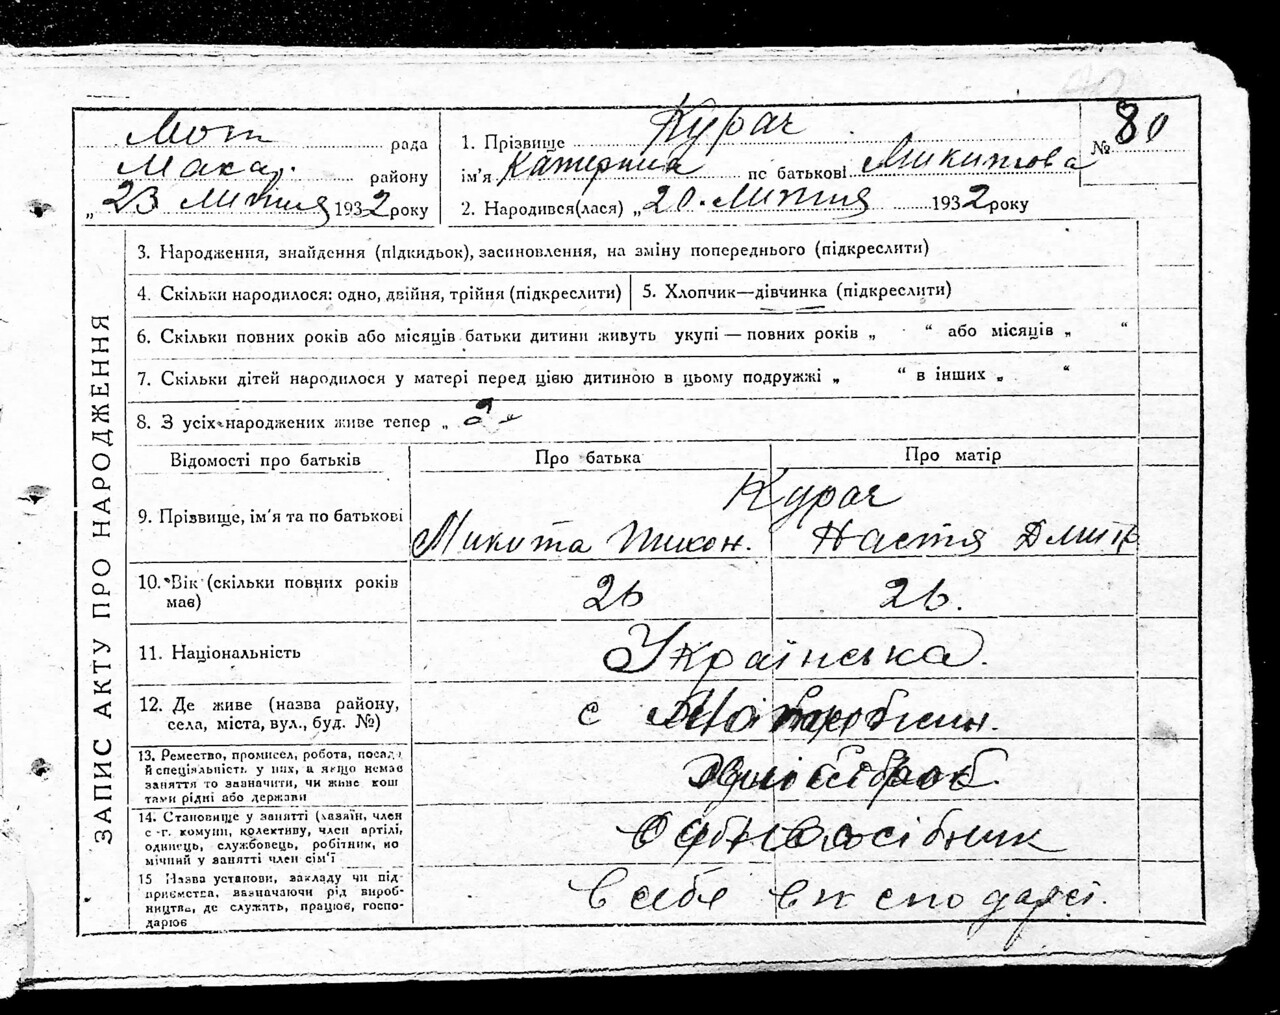 Мот рада
Мака. району
„23 Лютня 1932 року
1. Прізвище Курач
ім'я Катерина по батькові Микитова
2. Народився(лася) „20. Лютня 1932 року
№ 80
ЗАПИС АКТУ ПРО НАРОДЖЕННЯ
3. Народження, знайдення (підкидьок), засиновлення, на зміну попереднього (підкреслити)
4. Скільки народилося: одно, двійня, трійня (підкреслити)
5. Хлопчик—дівчинка (підкреслити)
6. Скільки повних років або місяців батьки дитини живуть укупі — повних років „ “ або місяців „ “
7. Скільки дітей народилося у матері перед цією дитиною в цьому подружжі „ “ в інших „ “
8. З усіх народжених живе тепер „
Відомості про батьків
Про батька
Про матір
9. Прізвище, ім'я та по батькові
Курач
Микита Тихон.
Настя Дмитр
10. Вік (скільки повних років
має)
26
26.
11. Національність
Українська.
12. Де живе (назва району,
села, міста, вул., буд. №)
с
13. Ремество, промисел, робота, посада
й спеціяльність у них, а якщо немає
заняття то зазначити, чи живе кош
тами рідні або держави
14. Становище у занятті (хазяїн, член
с.-г. комуни, колективу, член артілі,
одинець, службовець, робітник, по
мічний у занятті член сім'ї
Одноосібник
15 Назва установи, закладу чи під
приємства, зазначаючи рід вироб-
ництва, де служать, працює, госпо-
дарює
в себе в господарсі.